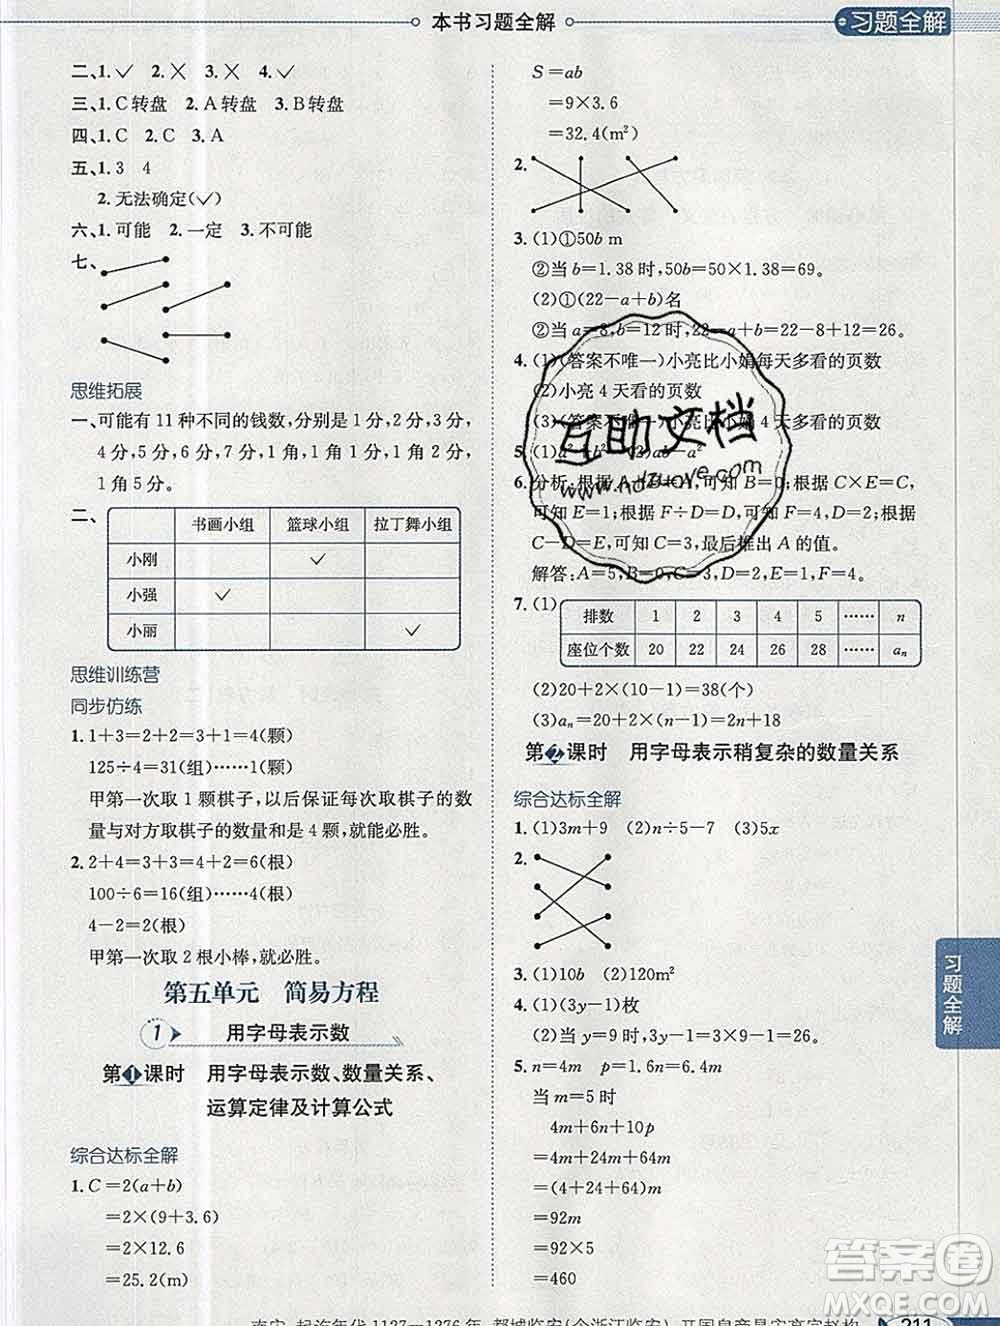 本书习题全解
习题全解
二、1.✓ 2.✗ 3.✗ 4.✓
三、1.C转盘 2.A转盘 3.B转盘
四、1.C 2.C 3.A
五、1.3 4
2.无法确定(✓)
六、1.可能 2.一定 3.不可能
七、
思维拓展
一、可能有11种不同的钱数，分别是1分，2分，3分，
4分，5分，6分，7分，1角，1角1分，1角2分，
1角5分。
二、
书画小组 篮球小组 拉丁舞小组
小刚 ✓
小强 ✓
小丽 ✓
思维训练营
同步仿练
1. 1+3=2+2=3+1=4(颗)
125÷4=31(组)……1(颗)
甲第一次取1颗棋子，以后保证每次取棋子的数
量与对方取棋子的数量和是4颗，就能必胜。
2. 2+4=3+3=4+2=5+1=6(根)
100÷6=16(组)……4(根)
4-2=2(根)
甲第一次取2根小棒，就能必胜。
第五单元 简易方程
1 用字母表示数
第1课时 用字母表示数、数量关系、
运算定律及计算公式
综合达标全解
1. C=2(a+b)
=2×(9+3.6)
=2×12.6
=25.2(m)
S=ab
=9×3.6
=32.4(m²)
2.
3. (1)①50b m
②当b=1.38时，50b=50×1.38=69。
(2)①(22-a+b)名
②当a=8，b=12时，22-a+b=22-8+12=26。
4. (1)(答案不唯一)小亮比小娟每天多看的页数
(2)小亮4天看的页数
(3)(答案不唯一)小亮比小娟4天多看的页数
5. (1)a²+b² (2)ab-a²
6. 分析：根据A+B=A，可知B=0；根据C×E=C，
可知E=1；根据F÷D=D，可知F=4，D=2；根据
C-D=E，可知C=3，最后推出A的值。
解答：A=5，B=0，C=3，D=2，E=1，F=4。
7. (1)
排数 1 2 3 4 5 …… n
座位个数 20 22 24 26 28 …… aₙ
(2)20+2×(10-1)=38(个)
(3)aₙ=20+2×(n-1)=2n+18
第2课时 用字母表示稍复杂的数量关系
综合达标全解
1. (1)3m+9 (2)n÷5-7 (3)5x
2.
3. (1)10b (2)120m²
4. (1)(3y-1)枚
(2)当y=9时，3y-1=3×9-1=26。
5. n=4m p=4n=4×4m=16m
当m=5时
4m+6n+10p
=4m+6×4m+10×16m
=(4+24+64)m
=92m
=92×5
=460
习题全解
互助文档
www.hdzuoye.com
答案圈
211